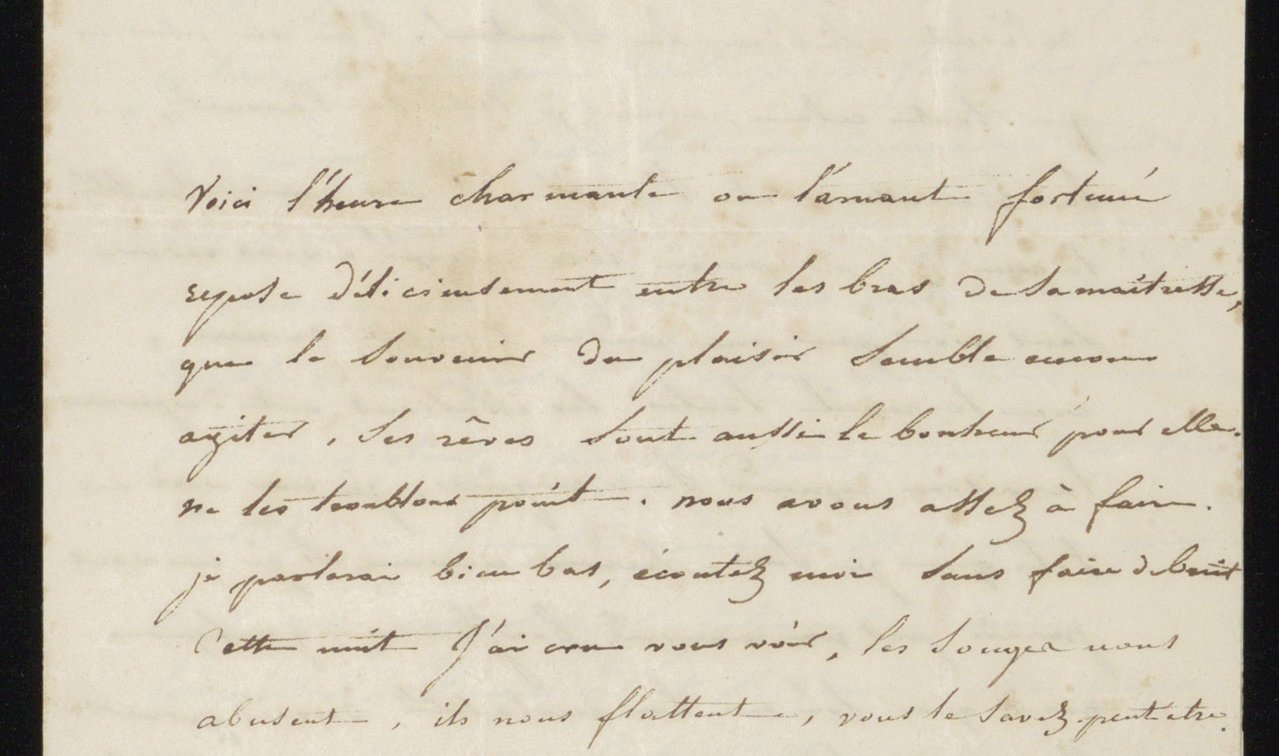 Voici l'heure charmante ou l'amant fortuné
repose délicieusement entre les bras de sa maitresse,
que le souvenir du plaisir semble encore
agiter, ses rêves sont aussi le bonheur pour elle.
ne les troublons point. nous avons assez à faire.
je parlerai bien bas, écoutez moi sans faire de bruit
Cette nuit J'ai cru vous voir, les songes nous
abusent, ils nous flattent, vous le savez peut etre.